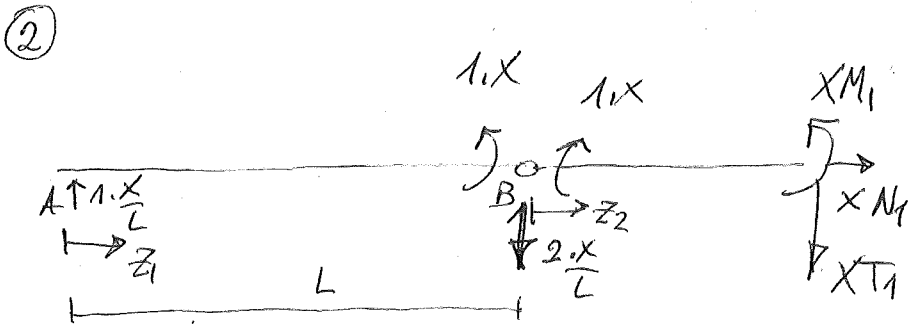 2
1.X
1.X
XM1
A
1.X/L
B
Z2
XN1
Z1
2.X/L
XT1
L